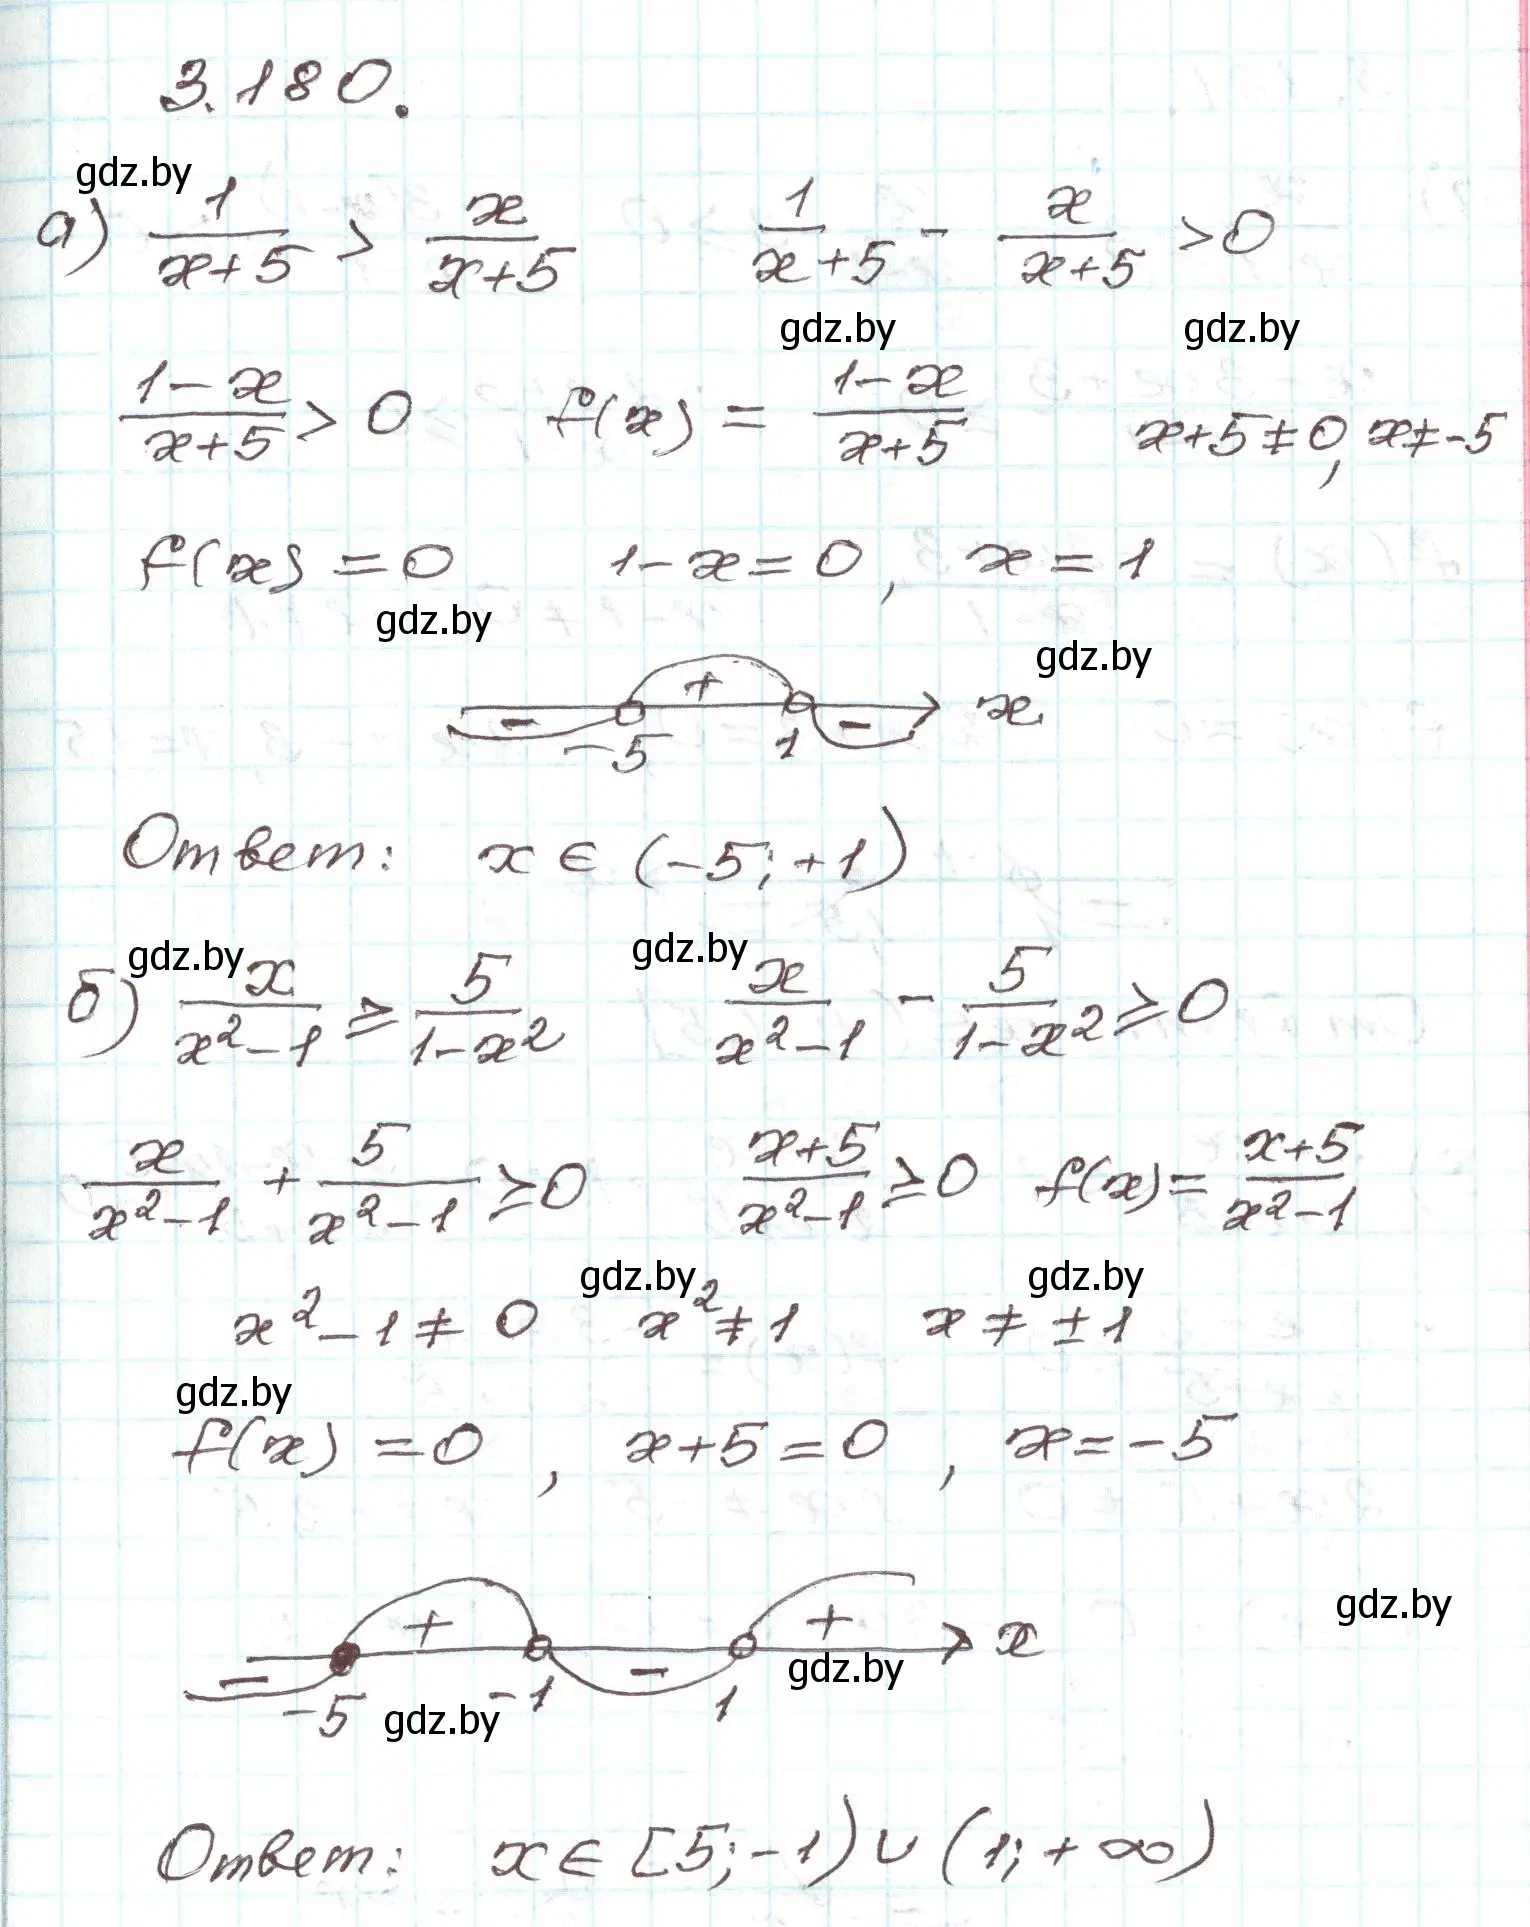 3.180.
gdz.by
а) 1/(x+5) > x/(x+5)   1/(x+5) - x/(x+5) > 0
gdz.by gdz.by
(1-x)/(x+5) > 0   f(x) = (1-x)/(x+5)   x+5≠0, x≠-5
f(x) = 0   1-x=0, x=1
gdz.by
gdz.by
- + - x
-5 1
Ответ: x ∈ (-5; +1)
gdz.by gdz.by
б) x/(x²-1) ≥ 5/(1-x²)   x/(x²-1) - 5/(1-x²) ≥ 0
x/(x²-1) + 5/(x²-1) ≥ 0   (x+5)/(x²-1) ≥ 0   f(x) = (x+5)/(x²-1)
gdz.by gdz.by
x²-1 ≠ 0   x² ≠ 1   x ≠ ±1
gdz.by
f(x) = 0, x+5=0, x=-5
gdz.by
- + - + x
gdz.by
-5 -1 1
gdz.by
Ответ: x ∈ [5; -1) ∪ (1; +∞)